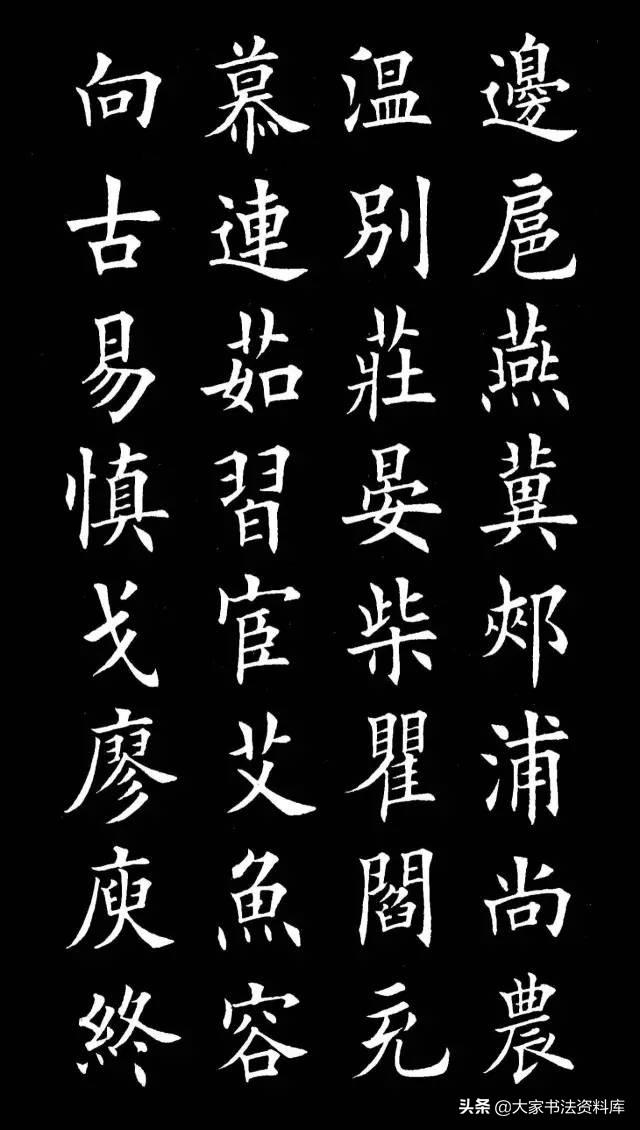 邊扈燕冀郟浦尚農
温别莊晏柴瞿閻充
慕連茹習宦艾魚容
向古易慎戈廖庾終
头条 @大家书法资料库